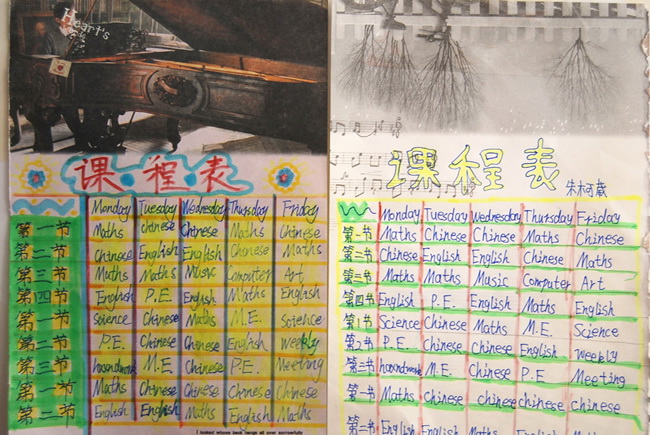 Heart's
课程表
Monday Tuesday Wednesday Thursday Friday
第一节 Maths Chinese Chinese Maths Chinese
第二节 Chinese English English Chinese Maths
第三节 Maths Maths Music Computer Art
第四节 English P.E. English Maths English
第一节 Science Chinese Maths M.E. Science
第二节 P.E. Chinese Chinese English Weekly
第三节 M.E. Chinese P.E. Meeting
第一节 Maths Chinese Chinese Chinese Chinese
第二节 English English Maths English Maths
课程表
Monday Tuesday Wednesday Thursday Friday
第一节 Maths Chinese Chinese Maths Chinese
第二节 Chinese English English Chinese Maths
第三节 Maths Maths Music Computer Art
第四节 English P.E. English Maths English
第1节 Science Chinese Maths M.E. Science
第2节 P.E. Chinese Chinese English Weekly
第三节 M.E. Chinese P.E. Meeting
第一节 Maths Chinese chinese chinese Chinese
English English Maths English Maths